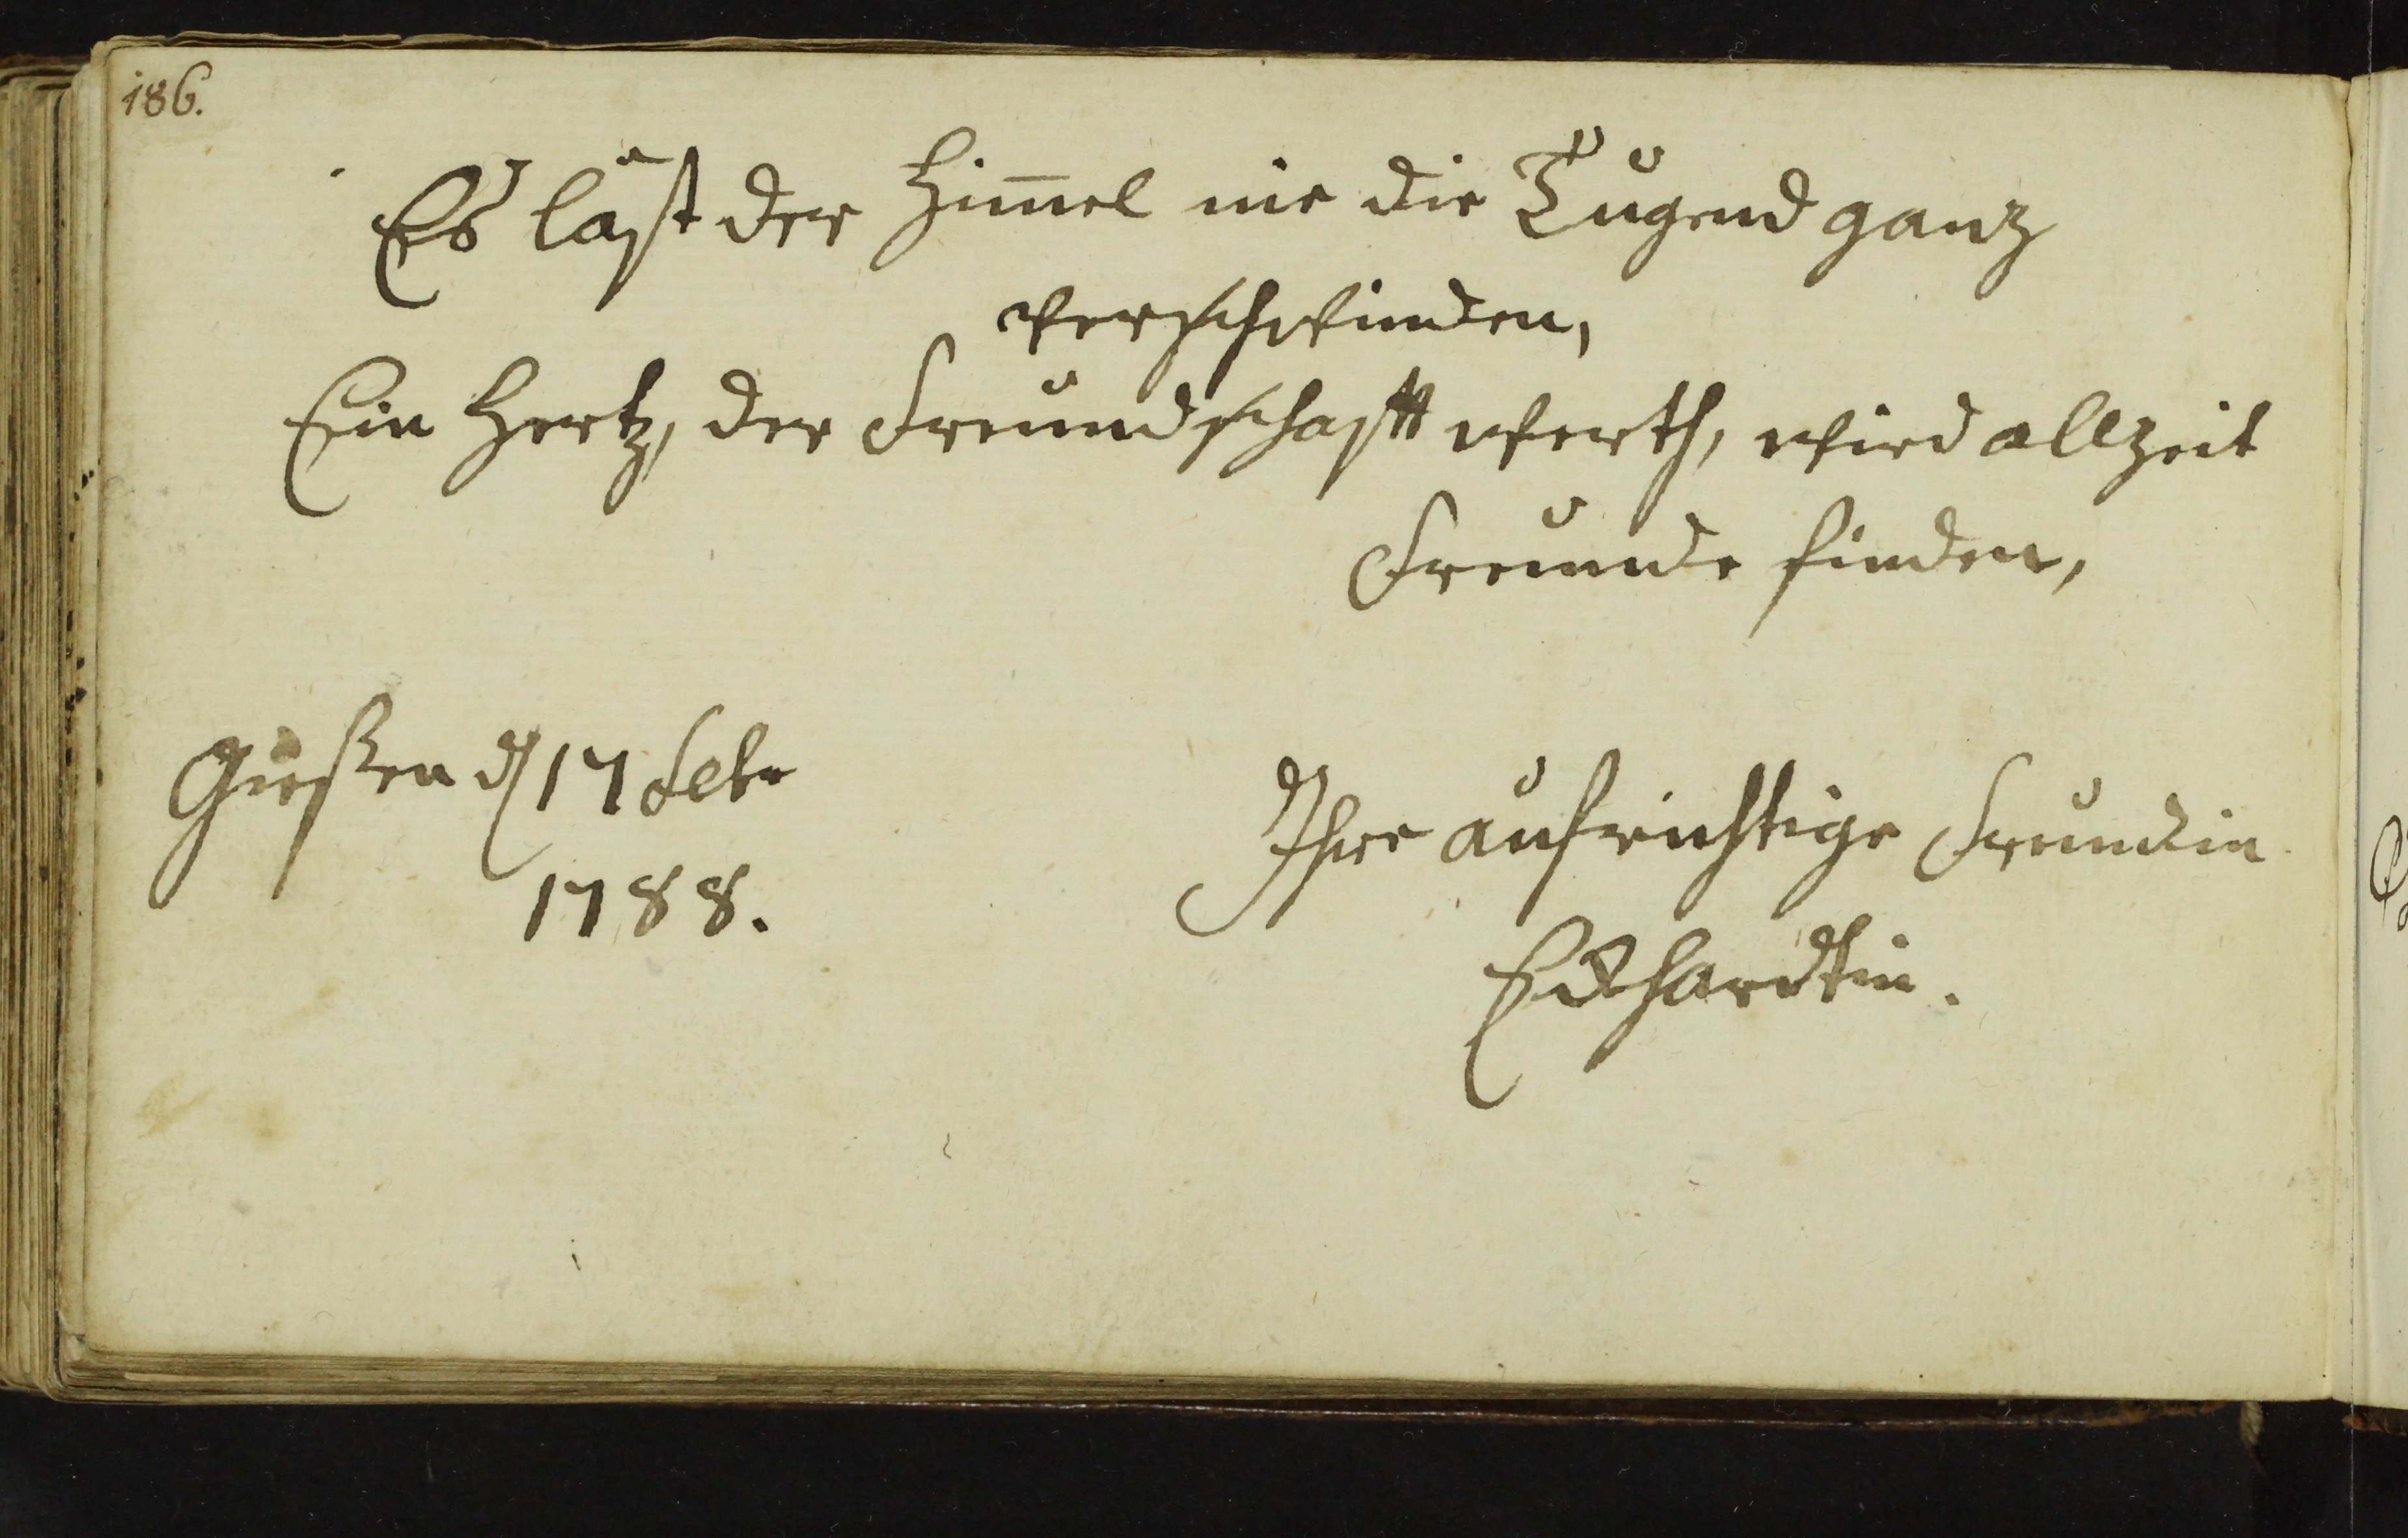 186.
Es läst der Him̅el nie die Tugend ganz
verschwinden,
Ein Hertz, der Freundschafft werth, wird allzeit
Freunde finden,
Gießen d 17 Febr
1788.
Ihre aufrichtige Freundin
Eckhardtin.